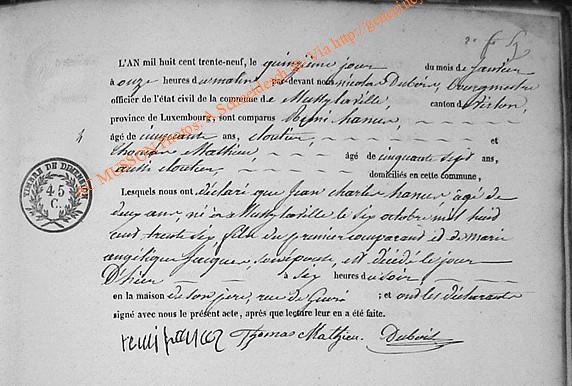 L'AN mil huit cent trente-neuf, le quinzième jour du mois de Janvier
à onze heures du matin par-devant nous Nicolas Dubois, Bourgmestre
officier de l'état civil de la commune de Mussy la ville, canton de Virton,
province de Luxembourg, sont comparus Remi hansen,
âgé de cinquante ans, cloutier, et
Thomas Mathieu âgé de cinquante sept ans,
aussi cloutier, domiciliés en cette commune,
Lesquels nous ont déclaré que Jean charles hansen, âgé de
deux ans, né à Mussy la ville le six octobre mil huit
cent trente six, fils du premier comparant et de marie
angélique Jacques, son épouse, est décédé le jour
D'hier à six heures du soir
en la maison de son père, rue de ; et ont les déclarants
signé avec nous le présent acte, après que lecture leur en a été faite.
remi hansen Thomas Mathieu Dubois
TIMBRE DE DIMENSION
45
C.
MUSSON Photos: A. Schneiderch @ Via http://